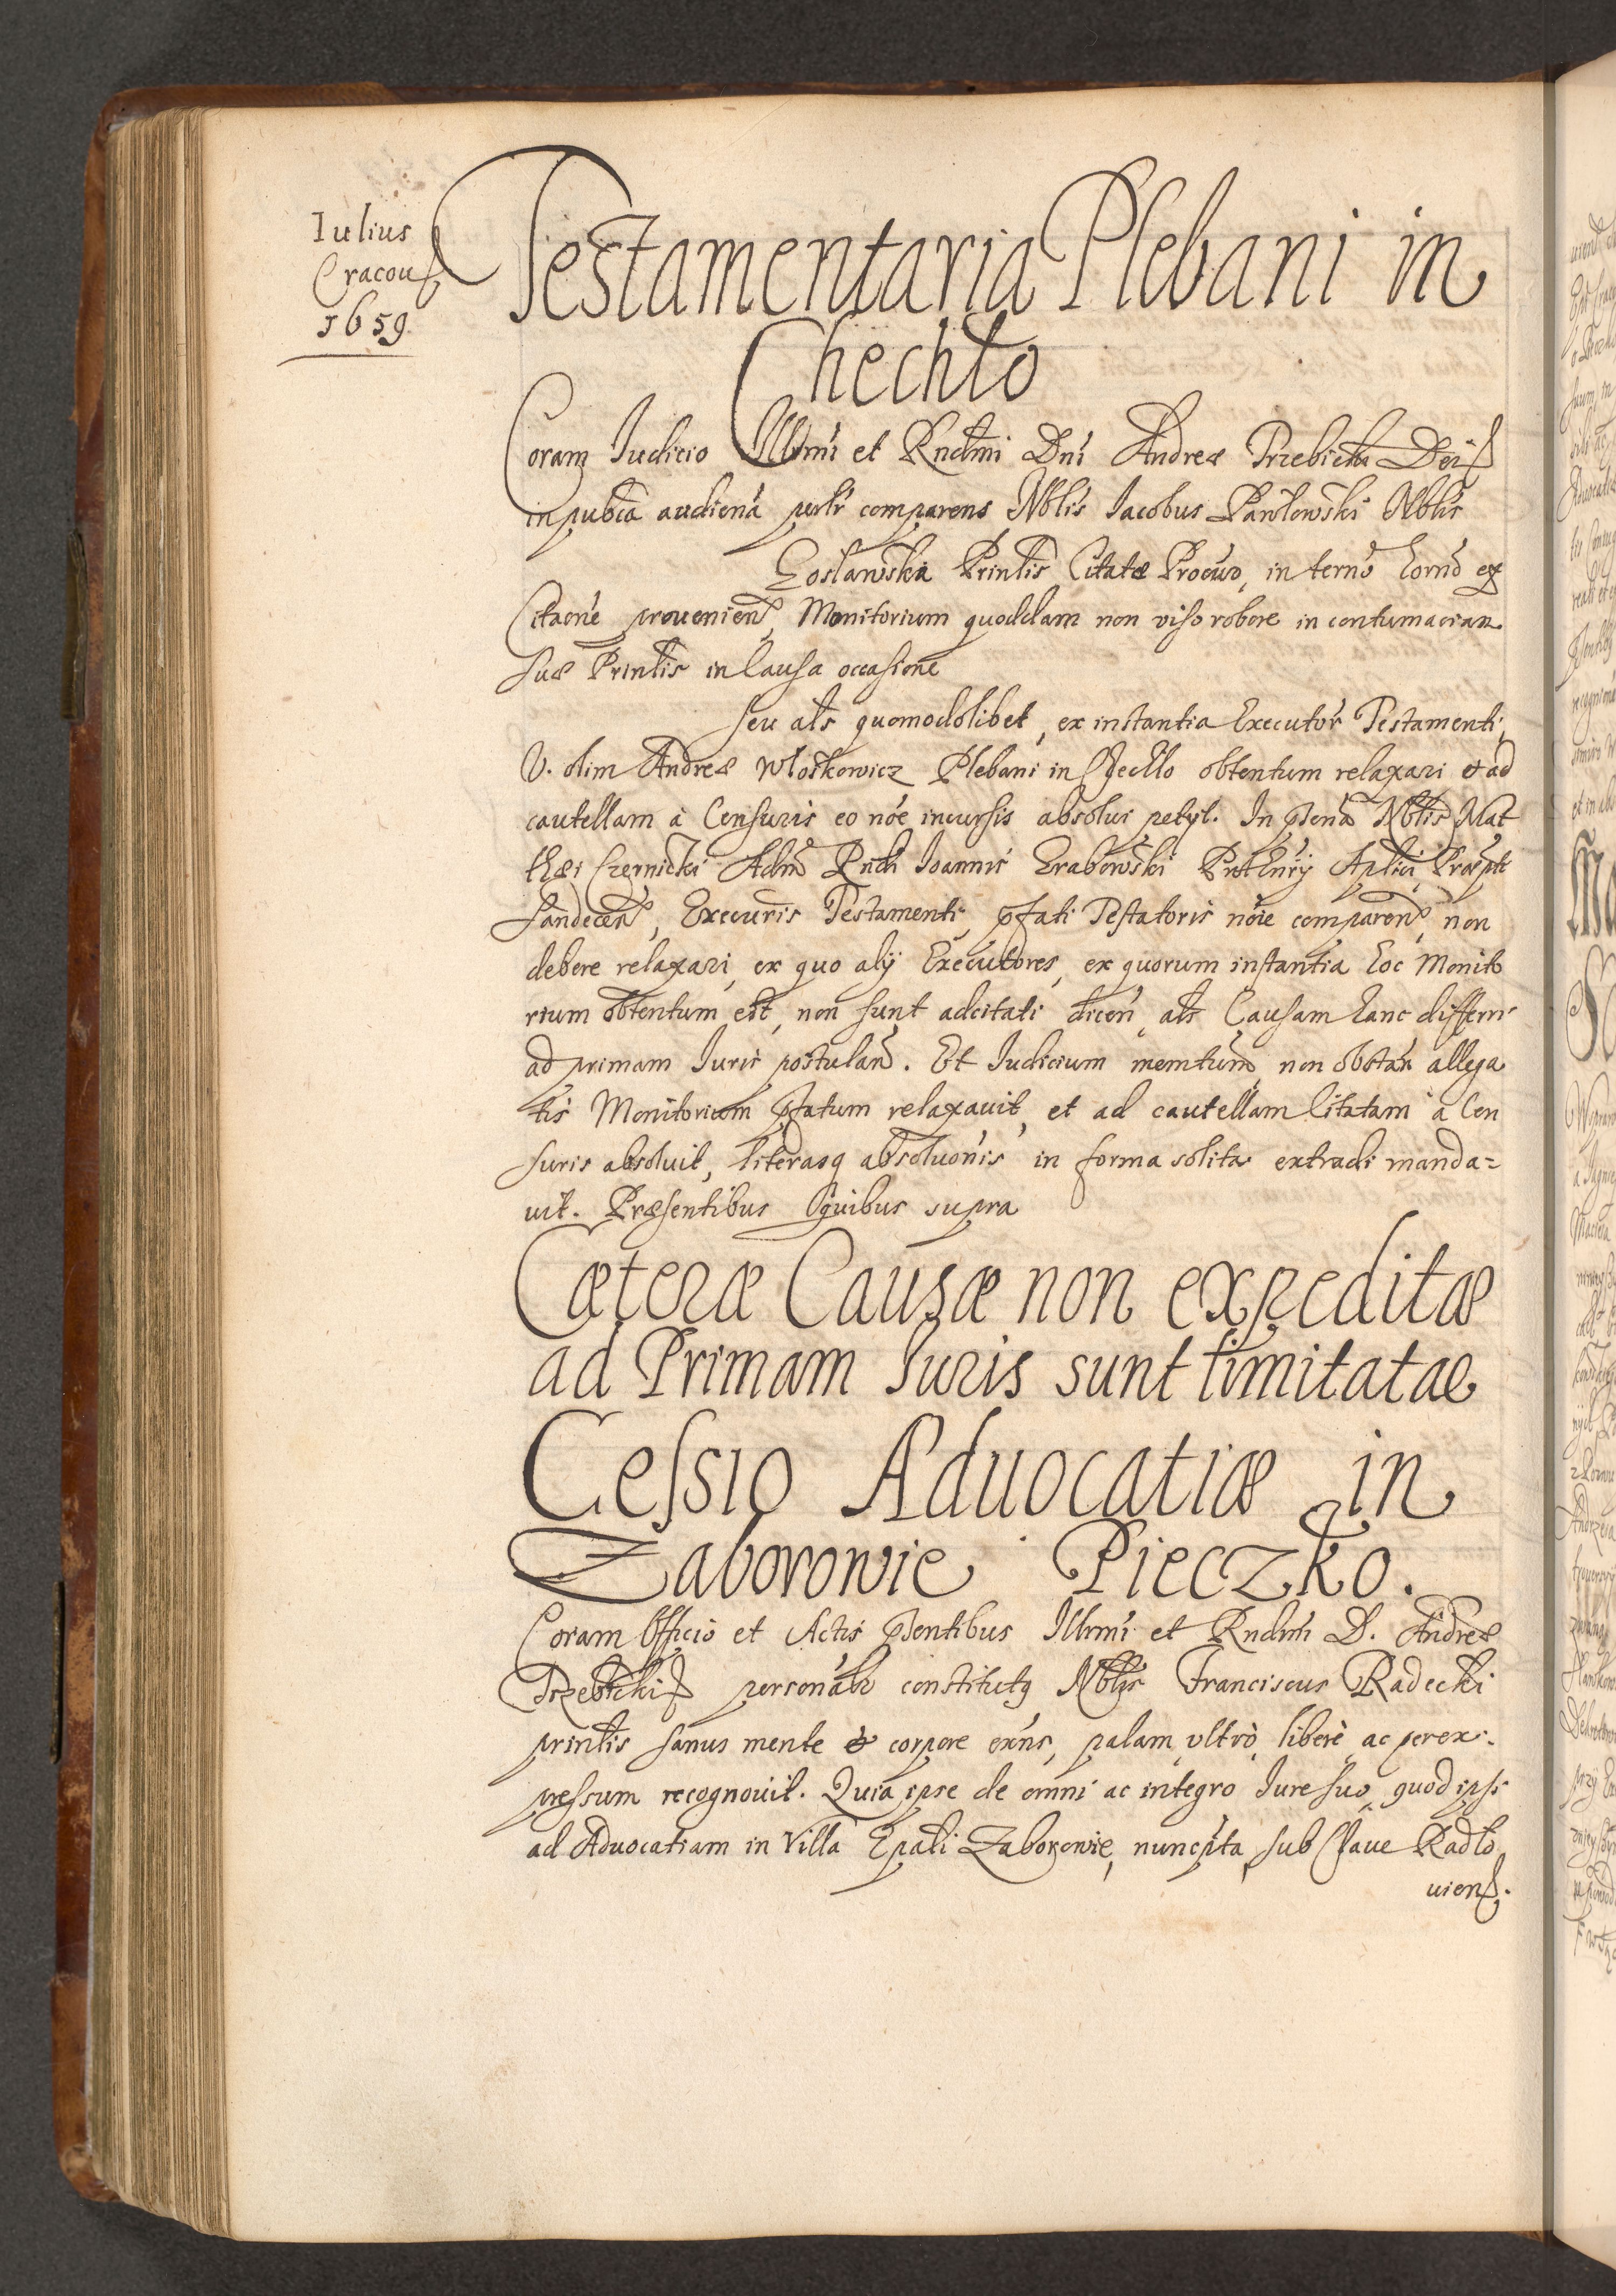 Iulius
Cracouß
1659
Testamentaria Plebani in
Chechło
Coram Iudicio Illrmi et Rndmi Dni Andreæ Trzebicki Dei
in pubca audiena perlr comparens Nblis Iacobus Pawłowski Nblis
Goslawska Prinlis Citatæ Procur, in terno hornd ex
Citaone prouenien, Monitorium quoddam non viso robore in contumaciam
suæ Prinlis in Causa occasione
seu als quomodolibet, ex instantia Executor Testamenti
V. olim Andreæ Włoskowicz Plebani in Chechlo obtentum relaxari et ad
cautellam à Censuris eo nóe incursis absolui petyt. In pñena Nblis Mat
thæi Czernicki Adm Rndi Ioannis Grabowski Prothnrij Aplici Præpti
Sandecen, Execuris Testamenti, pfati Testatoris nóie comparen, non
debere relaxari, ex quo alÿ Executores, ex quorum instantia hoc Monito
rium obtentum est, non sunt adcitati dicen, als Causam hanc differri
ad primam Iuris postulan. Et Iudicium memtum, non obstan allega
tis Monitorium pfatum relaxauit, et ad cautellam Citatam à Cen
suris absoluit, literasq absoluonis in forma solita extradi manda=
uit. Præsentibus quibus supra
Cæteræ Causæ non expeditæ
ad Primam Iuris sunt limitatae
Cessio Aduocatiæ in
Zaborowie Pieczko.
Coram Officio et Actis pñentibus Illrmi et Rndmi D. Andreæ
Trzebicki personalr constitutq Nblis Franciscus Radecki
prinlis sanus mente et corpore exns, palam, vltrò, liberè, ac per ex:
pressum recognouit. Quia ipse de omni ac integro Iure suo, quod ipsi
ad Aduocatiam in Villa Epali Zaborowie, nuncpta, sub Claue Radło
uienß.